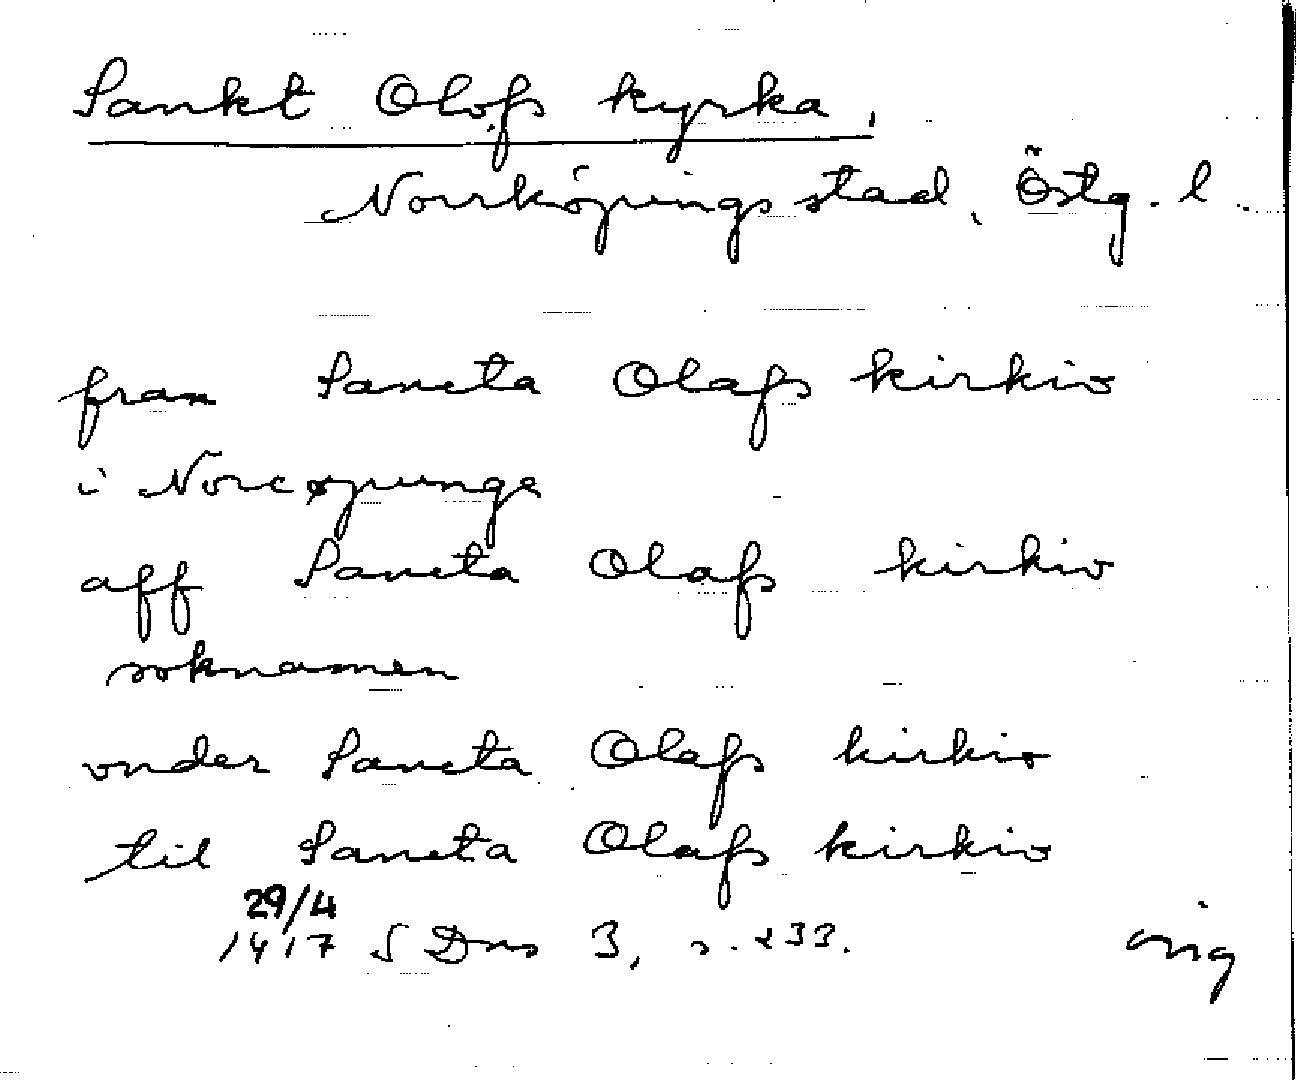 Sankt Olofs kyrka,
Norrköpings stad, Östg. l.
fran Sancta Olafs kirkio
i Norcøpunge
aff Sancta Olafs kirkio
soknamen
vnder Sancta Olafs kirkio
til Sancta Olafs kirkio
29/4
1417 SDns 3, s. 233. orig